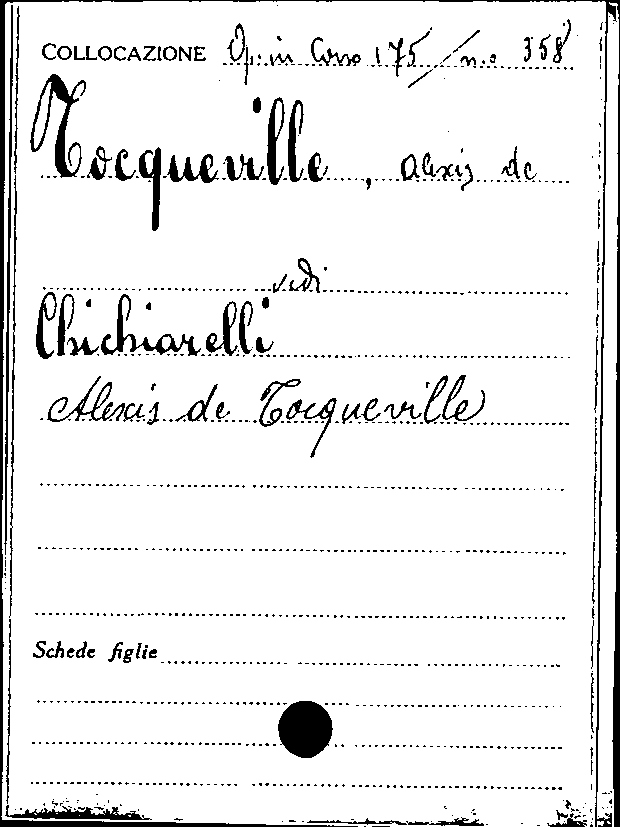 COLLOCAZIONE Op. in Corso 175/n.o 358
Tocqueville, Alexis de
vedi
Chichiarelli
Alexis de Tocqueville
Schede figlie